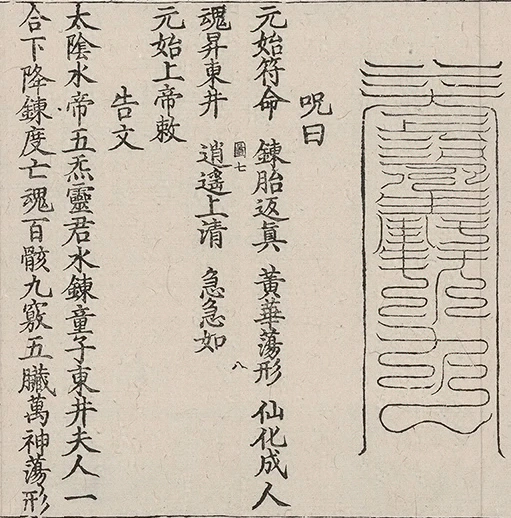 呪曰
元始符命 鍊胎返眞 黃華蕩形 仙化成人
魂昇東井 逍遙上清 急急如
圖七 八
元始上帝敕
告文
太陰水帝五炁靈君水鍊童子東井夫人一
合下降鍊度亡魂百骸九竅五臟萬神蕩形